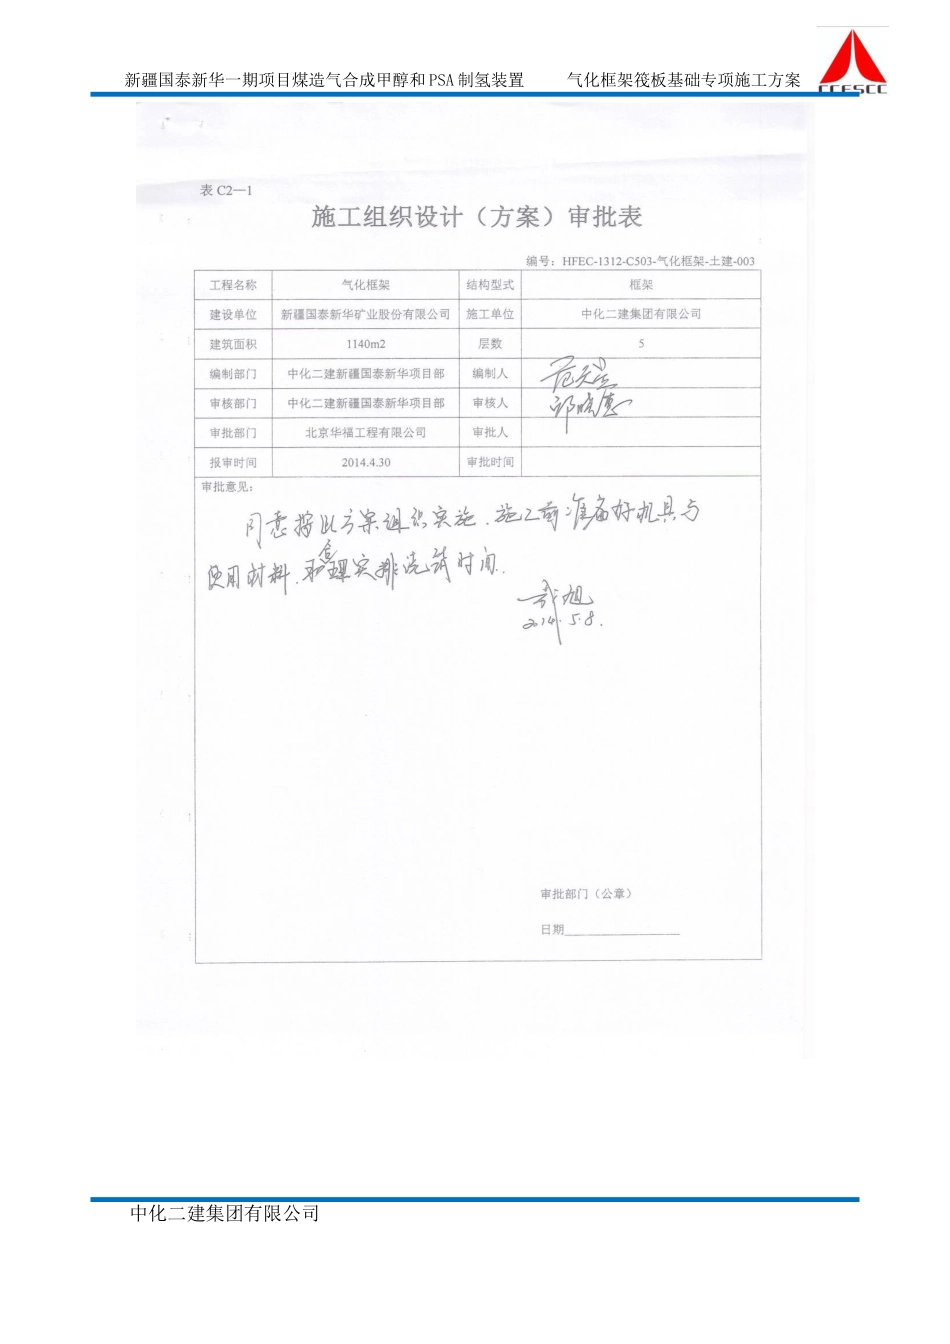 新疆国泰新华一期项目煤造气合成甲醇和PSA制氢装置 气化框架筏板基础专项施工方案
CCESCC
表 C2—1
施工组织设计（方案）审批表
编号：HFEC-1312-C503-气化框架-土建-003
工程名称 气化框架 结构型式 框架
建设单位 新疆国泰新华矿业股份有限公司 施工单位 中化二建集团有限公司
建筑面积 1140m2 层数 5
编制部门 中化二建新疆国泰新华项目部 编制人
审核部门 中化二建新疆国泰新华项目部 审核人
审批部门 北京华福工程有限公司 审批人
报审时间 2014.4.30 审批时间
审批意见：
同意按此方案组织实施.施工前准备好机具与
使用材料.合理安排浇筑时间.
2014.5.8.
审批部门（公章）
日期
中化二建集团有限公司